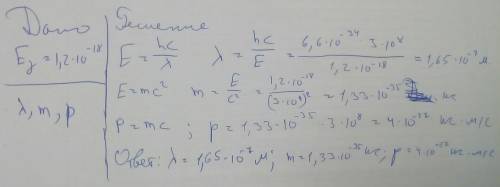 Дано
Решение
Eγ = 1,2·10⁻¹⁸
λ, m, p
E = hc/λ    λ = hc/E = 6,6·10⁻³⁴ 3·10⁸ / 1,2·10⁻¹⁸ = 1,65·10⁻⁷ м.
E = mc²    m = E/c² = 1,2·10⁻¹⁸ / (3·10⁸)² = 1,33·10⁻³⁵ кг
p = mc ; p = 1,33·10⁻³⁵ · 3·10⁸ = 4·10⁻²⁷ кг · м/с
Ответ: λ = 1,65·10⁻⁷ м; m = 1,33·10⁻³⁵ кг; p = 4·10⁻²⁷ кг · м/с